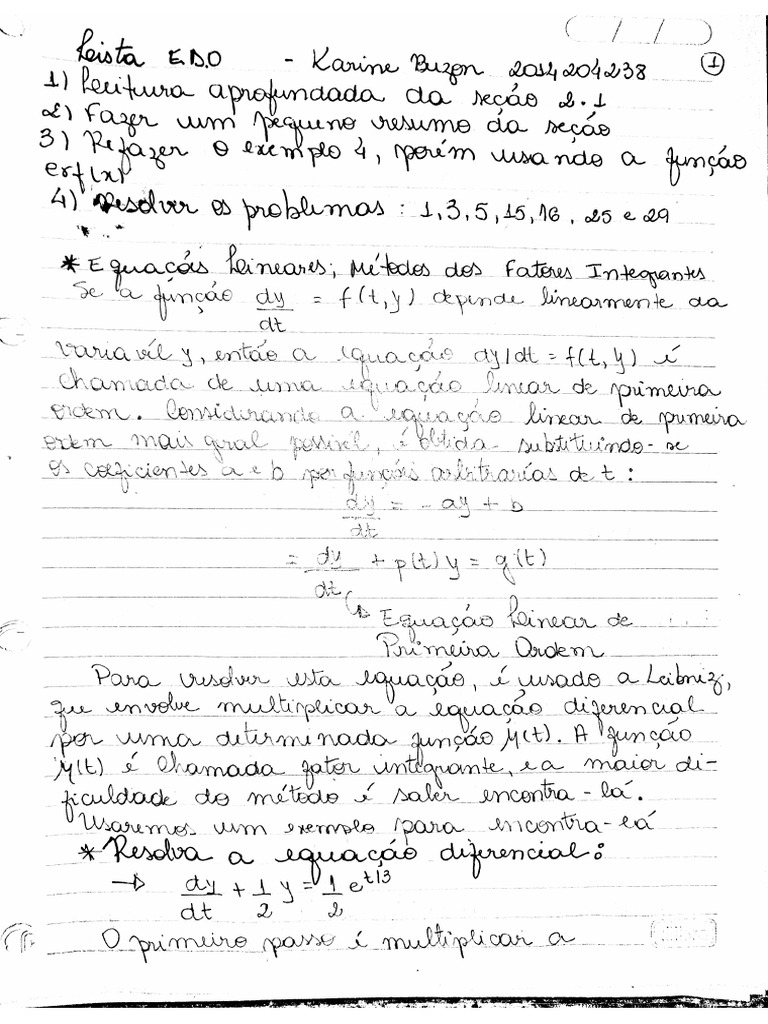 Leista E.D.O - Karine Buzon 2014204238 1
1) Leitura aprofundada da seção 2.1
2) Fazer um pequeno resumo da seção
3) Refazer o exemplo 4, porém usando a função
erf(x)
4) Resolver os problemas : 1, 3, 5, 15, 16, 25 e 29
* Equações Lineares; Métodos dos Fatores Integrantes
Se a função dy/dt = f(t,y) depende linearmente da
variavél y, então a equação dy/dt = f(t,y) é
chamada de uma equação linear de primeira
ordem. Considerando a equação linear de primeira
ordem mais geral possível, é obtida substituindo-se
os coeficientes a e b por funções arbitrarías de t :
dy/dt = - ay + b
= dy/dt + p(t) y = g(t)
Equação Leinear de
Primeira Ordem
Para resolver esta equação, é usado a Leibniz,
que envolve multiplicar a equação diferencial
por uma determinada função μ(t). A função
μ(t) é chamada fator integrante, e a maior di-
ficuldade do método é saber encontra-lá.
Usaremos um exemplo para encontra-lá
* Resolva a equação diferencial:
→ dy/dt + 1/2 y = 1/2 e^t/3
O primeiro passo é multiplicar a